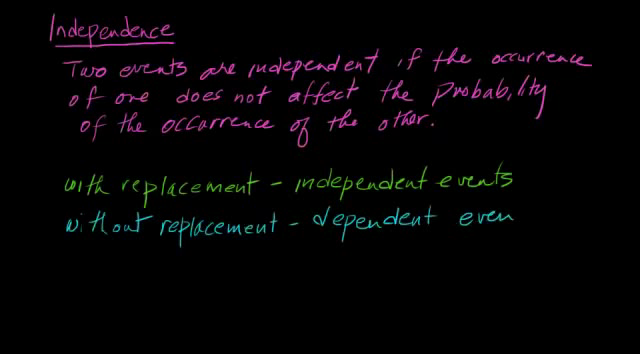 Independence
Two events are independent if the occurrence
of one does not affect the probability
of the occurrence of the other.
with replacement - independent events
without replacement - dependent even